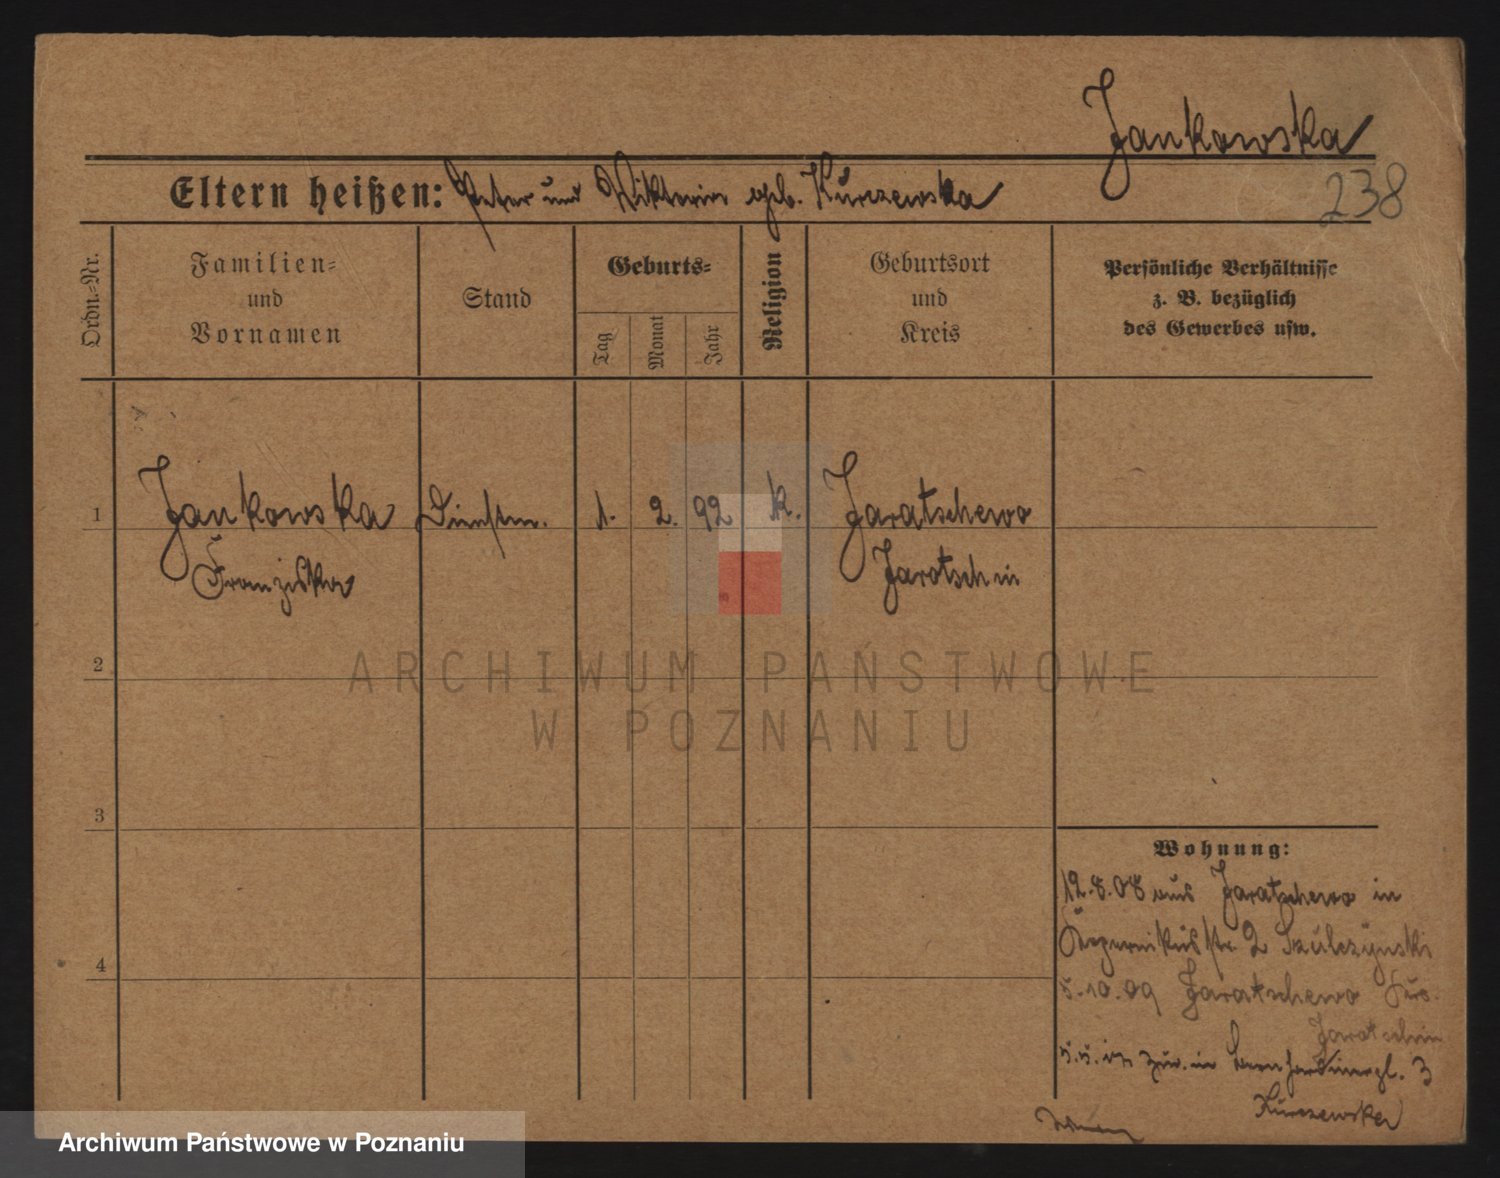 Jankowska
238
Eltern heißen: Peter und Wiktoria geb. Kurczewska
Ordn.-Nr.
Familien-
und
Vornamen
Stand
Geburts-
Tag
Monat
Jahr
Religion
Geburtsort
und
Kreis
Persönliche Verhältnisse
z. B. bezüglich
des Gewerbes usw.
1
Jankowska Dienstm. 1. 2. 92 k. Jaratschewo
Franziska Jarotschin
2
3
4
Wohnung:
12.8.08 aus Jaratschewo in
2 Szulczynski
5.10.09 Jaratschewo Krs.
Jarotschin
zur. in Bernhardinerpl. 3
Kurczewska
ARCHIWUM PAŃSTWOWE
W POZNANIU
Archiwum Państwowe w Poznaniu